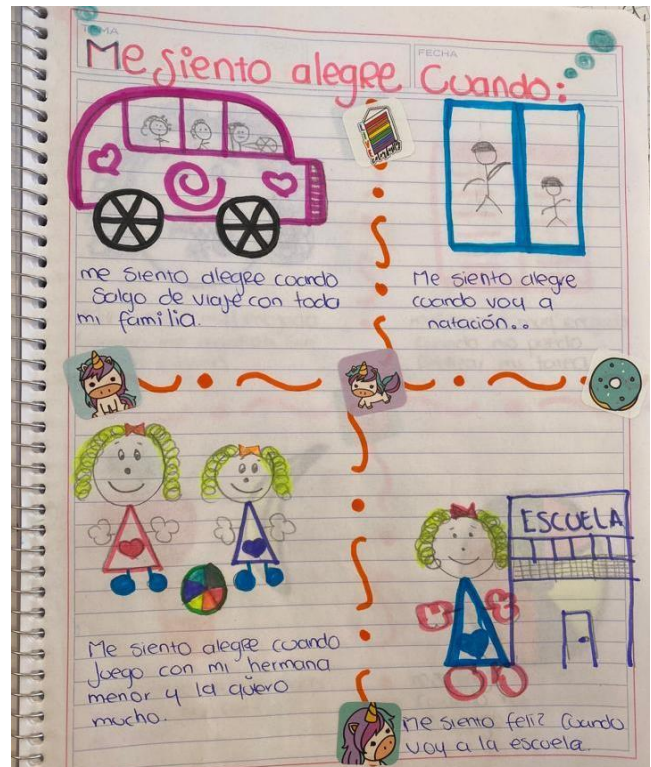 TEMA
FECHA
Me siento alegre Cuando:
me siento alegre cuando
Salgo de viaje con toda
mi familia.
Me siento alegre
cuando voy a
natación..
ESCUELA
Me siento alegre cuando
Juego con mi hermana
menor y la quiero
mucho.
me siento feliz Cuando
voy a la escuela.